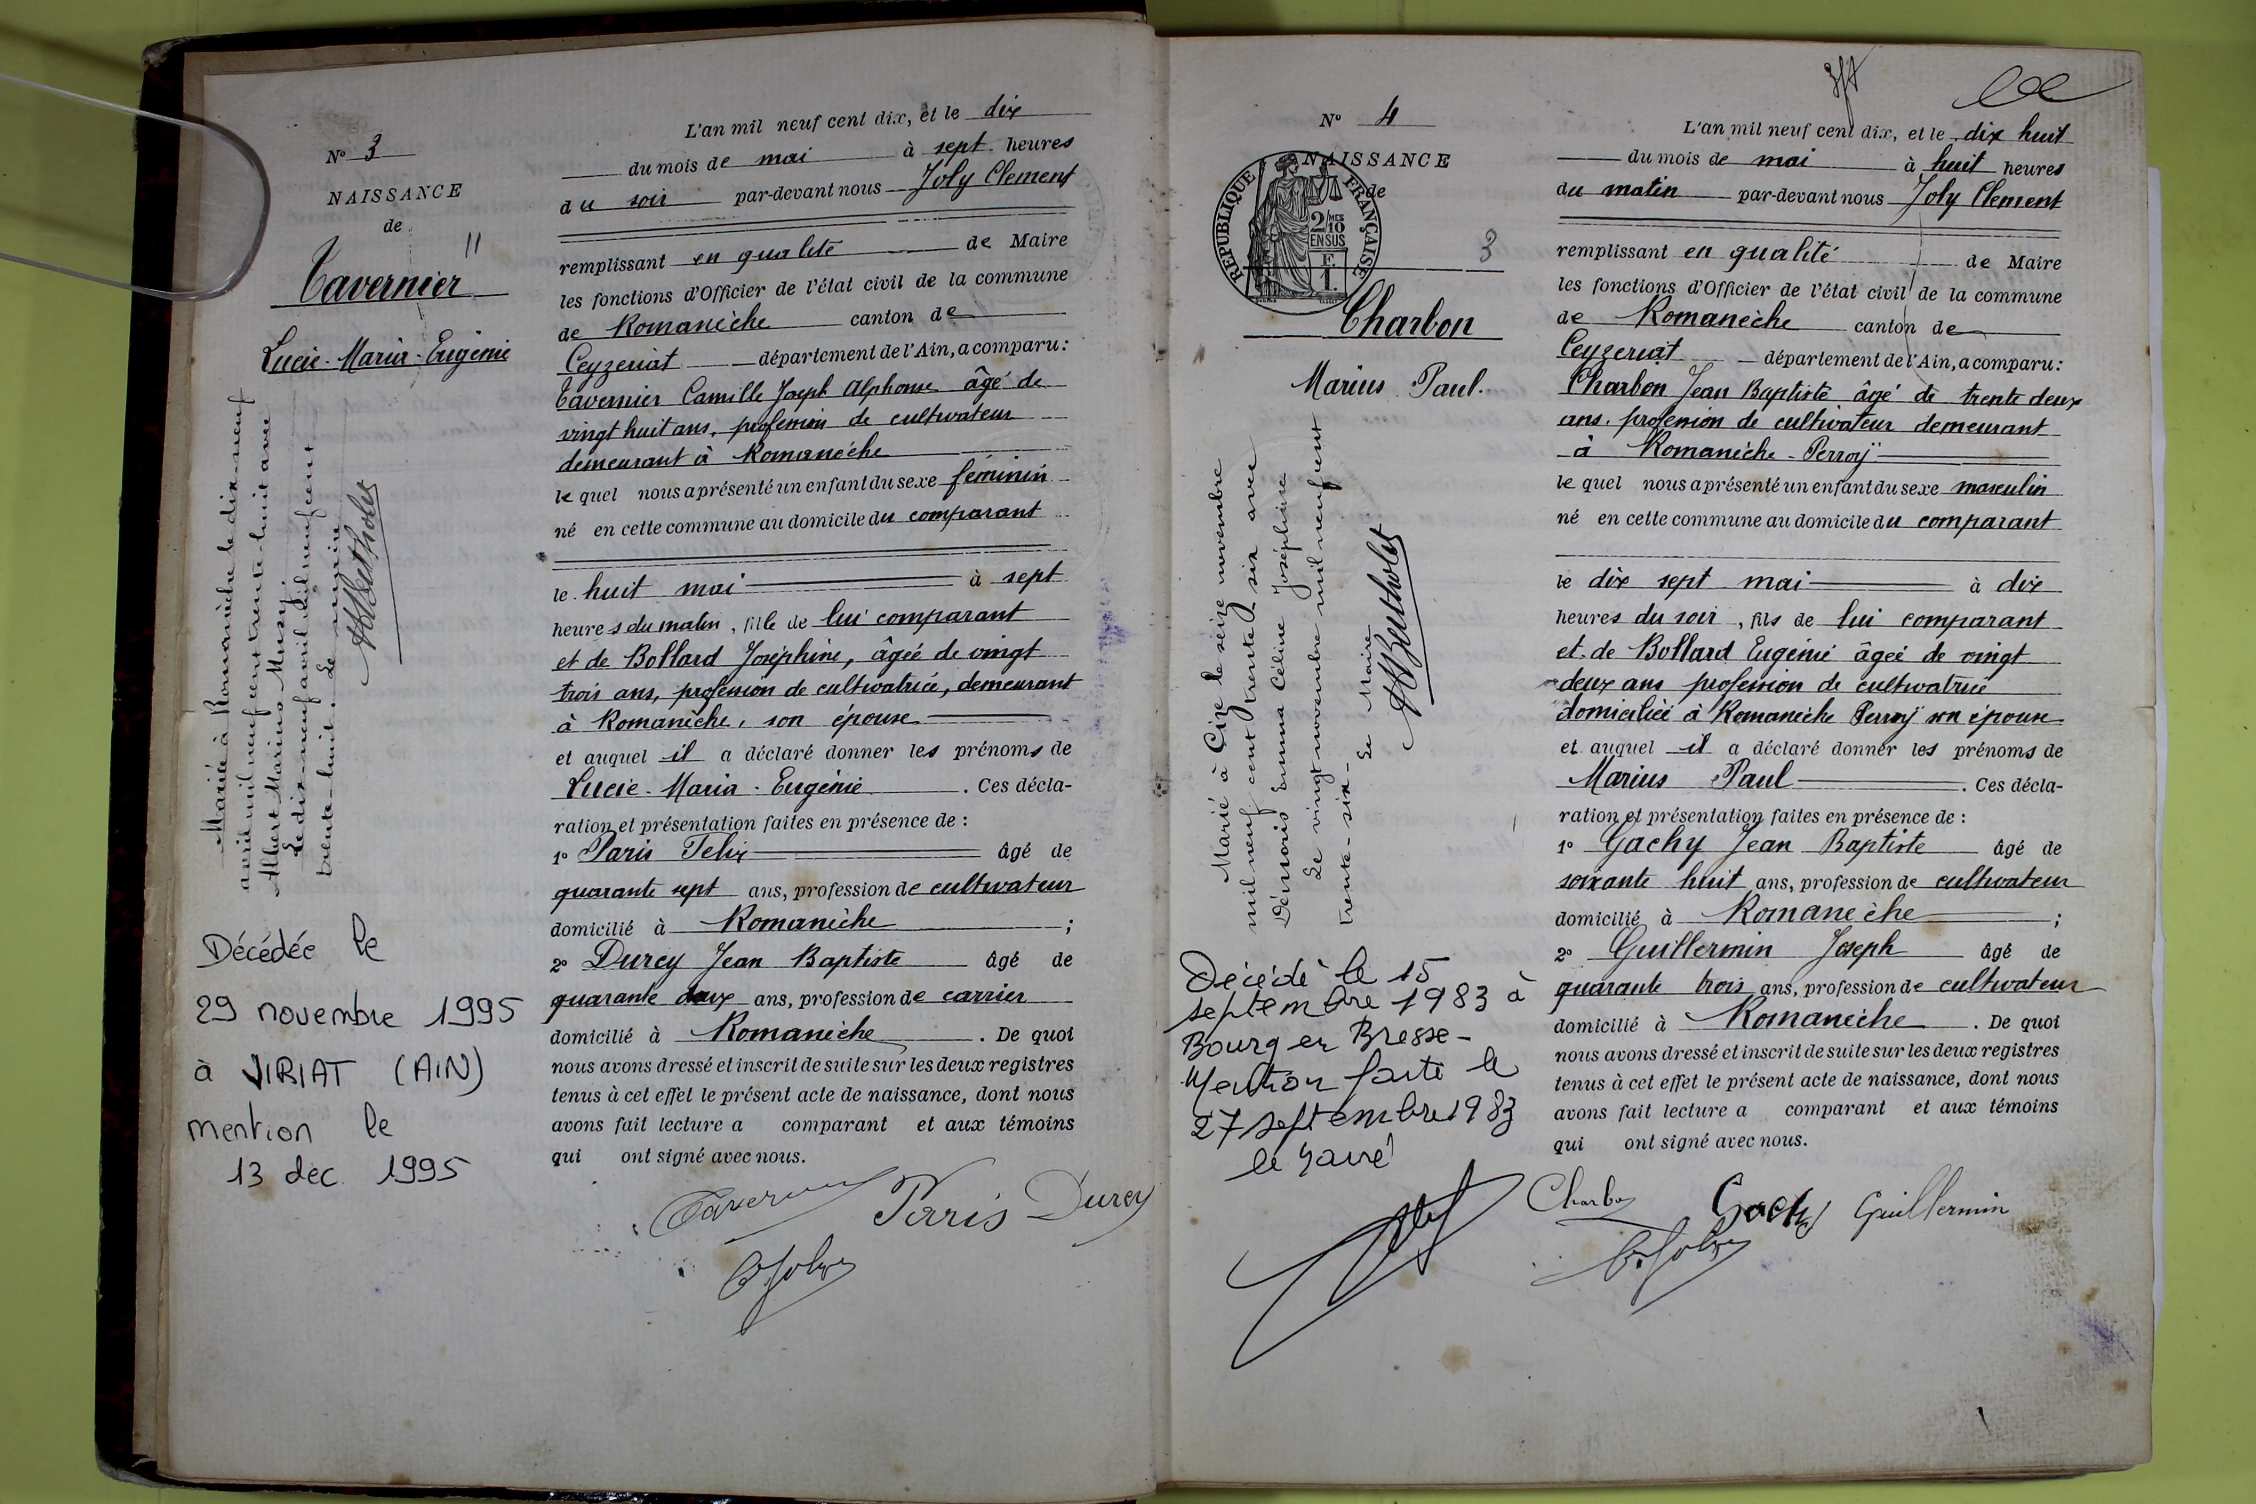 N° 3
NAISSANCE
de
Tavernier
Lucie-Maria-Eugénie
Mariée à Romanèche le dix-neuf
avril mil neuf cent trente-huit avec
Albert Marius
Le dix-neuf avril mil neuf cent
trente-huit. Le maire
Décédée le
29 novembre 1995
à VIRIAT (AIN)
mention le
13 dec 1995
L'an mil neuf cent dix, et le dix
du mois de mai à sept heures
du soir par-devant nous Joly Clement
remplissant en qualité de Maire
les fonctions d'Officier de l'état civil de la commune
de Romanèche canton de
Ceyzeriat département de l'Ain, a comparu:
Tavernier Camille Joseph Alphonse âgé de
vingt huit ans, profession de cultivateur
demeurant à Romanèche
le quel nous a présenté un enfant du sexe féminin
né en cette commune au domicile du comparant
le huit mai à sept
heures du matin, fille de lui comparant
et de Bollard Joséphine, âgée de vingt
trois ans, profession de cultivatrice, demeurant
à Romanèche, son épouse
et auquel il a déclaré donner les prénoms de
Lucie-Maria-Eugénie. Ces décla-
ration et présentation faites en présence de:
1° Paris Felix âgé de
quarante sept ans, profession de cultivateur
domicilié à Romanèche;
2° Durcy Jean Baptiste âgé de
quarante deux ans, profession de carrier
domicilié à Romanèche. De quoi
nous avons dressé et inscrit de suite sur les deux registres
tenus à cet effet le présent acte de naissance, dont nous
avons fait lecture a comparant et aux témoins
qui ont signé avec nous.
Tavernier Paris Durcy
C. Joly
N° 4
NAISSANCE
de
RÉPUBLIQUE FRANÇAISE
2/10 MES
EN SUS
F.
1.
3
Charbon
Marius Paul.
Marié à Cize le seize novembre
mil neuf cent trente-six avec
Emma Céline Joséphine
Le vingt novembre mil neuf cent
trente-six-
Le Maire
Décédé le 15
septembre 1983 à
Bourg en Bresse-
Mention faite le
27 septembre 1983
L'an mil neuf cent dix, et le dix huit
du mois de mai à huit heures
du matin par-devant nous Joly Clement
remplissant en qualité de Maire
les fonctions d'Officier de l'état civil de la commune
de Romanèche canton de
Ceyzeriat département de l'Ain, a comparu:
Charbon Jean Baptiste âgé de trente deux
ans, profession de cultivateur demeurant
à Romanèche-Perroÿ
le quel nous a présenté un enfant du sexe masculin
né en cette commune au domicile du comparant
le dix sept mai à dix
heures du soir, fils de lui comparant
et de Bollard Eugénie âgée de vingt
deux ans profession de cultivatrice
domiciliée à Romanèche Perroÿ son épouse
et auquel il a déclaré donner les prénoms de
Marius Paul. Ces décla-
ration et présentation faites en présence de:
1° Gachy Jean Baptiste âgé de
soixante huit ans, profession de cultivateur
domicilié à Romanèche;
2° Guillermin Joseph âgé de
quarante trois ans, profession de cultivateur
domicilié à Romanèche. De quoi
nous avons dressé et inscrit de suite sur les deux registres
tenus à cet effet le présent acte de naissance, dont nous
avons fait lecture a comparant et aux témoins
qui ont signé avec nous.
Charbon Gachy Guillermin
C. Joly